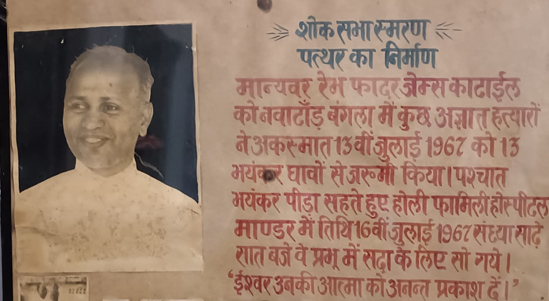 शोक सभा स्मरण
पत्थर का निर्माण
मान्यवर रेभ फादर जेम्स काटाईल
को नवाटाँड़ बंगला में कुछ अज्ञात हत्यारों
ने अकस्मात 13वीं जुलाई 1967 को 13
भयंकर घावों से जख्मी किया। पश्चात
भयंकर पीड़ा सहते हुए होली फामिली हॉस्पीटल
माण्डर में तिथि 16वीं जुलाई 1967 संध्या साढ़े
सात बजे वे प्रभु में सदा के लिए सो गये।
"ईश्वर उनकी आत्मा को अनन्त प्रकाश दें।"